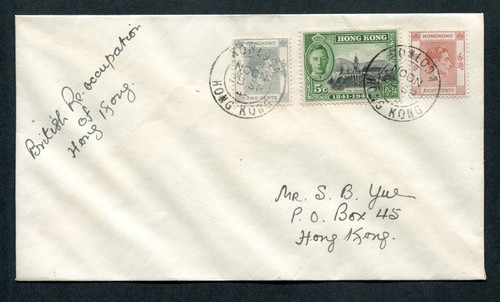 British Re-occupation
of
Hong Kong.
HONGKONG
TWO CENTS
HONG KONG
5c
1841-1941
HONGKONG
HONG KONG
KOWLOON
HONG KONG
Mr. S. B. Yue
P. O. Box 45
Hong Kong.